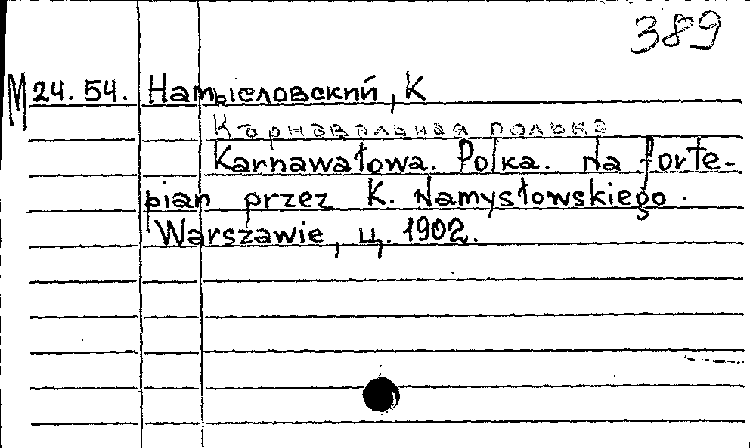 389
M 24.54. Намысловский, К
Карнавальная полька
Karnawałowa. Polka. na forte-
pian przez K. Namysłowskiego.
Warszawie, ц. 1902.